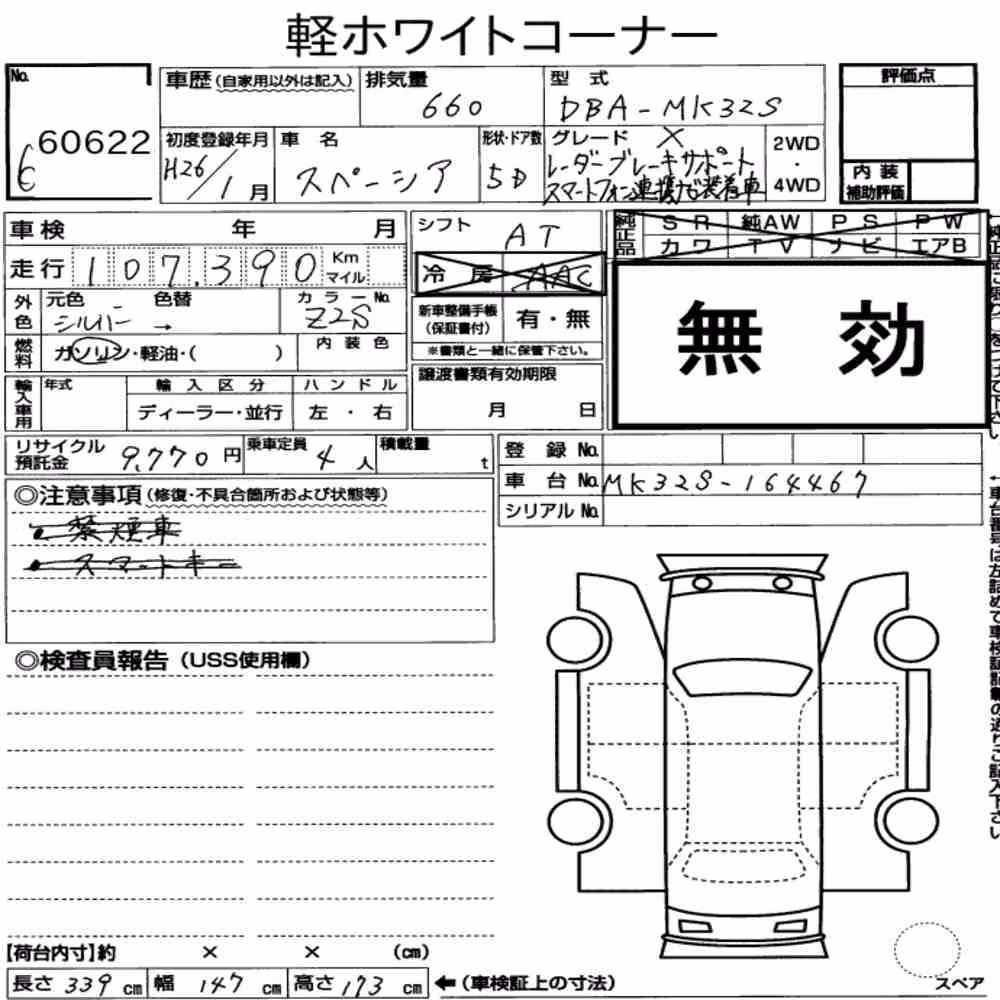 軽ホワイトコーナー
No.
60622
6
車歴(自家用以外は記入)
排気量
660
型 式
DBA-MK32S
評価点
初度登録年月
H26/1月
車 名
スペーシア
形状・ドア数
5D
グレード X
レーダーブレーキサポート
スマートフォン連携ナビ装着車
2WD
・
4WD
内 装
補助評価
車検 年 月
走行 107,390 Km
マイル
外色
元色 色替
シルバー →
カラーNo.
Z2S
燃料
ガソリン・軽油・( )
内 装 色
シフト
AT
冷 房 AAC
新車整備手帳
(保証書付)
有・無
※書類と一緒に保管下さい。
純正品
S R 純AW P S P W
カ ワ T V ナ ビ エアB
無 効
輸入車用
年式
輸 入 区 分
ディーラー・並行
ハ ン ド ル
左 ・ 右
譲渡書類有効期限
月 日
リサイクル
預託金
9,770 円
乗車定員
4 人
積載量
t
登 録 No.
車 台 No. MK32S-164467
シリアル No.
◎注意事項(修復・不具合箇所および状態等)
・禁煙車
・スマートキー
◎検査員報告(USS使用欄)
車台番号は左詰めで車検証記載の通りご記入下さい
【荷台内寸】約 × × (cm)
長さ 339 cm 幅 147 cm 高さ 173 cm ←(車検証上の寸法)
スペア